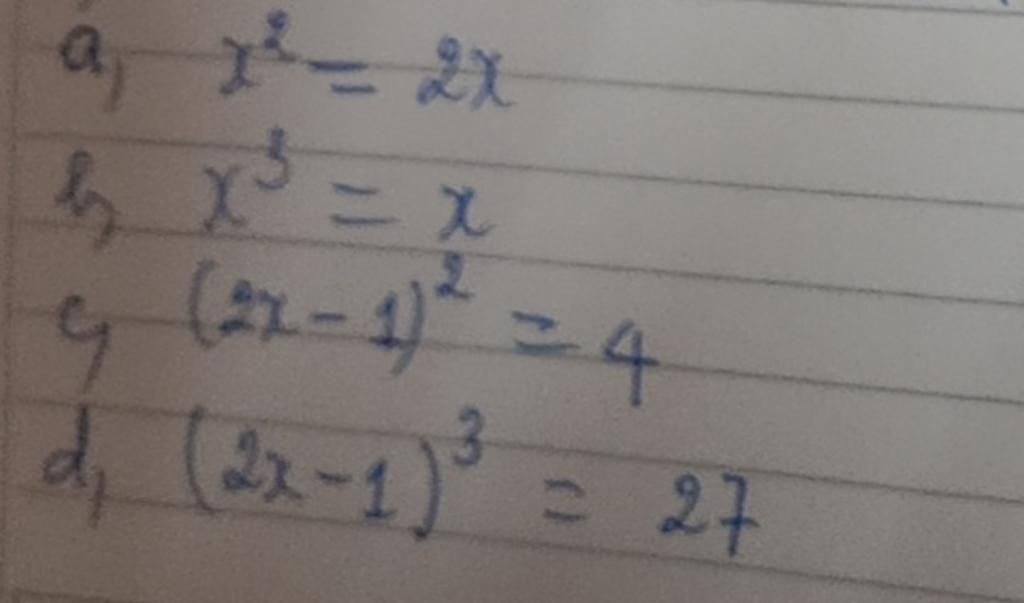 a, x² = 2x
b, x³ = x
c, (2x - 1)² = 4
d, (2x - 1)³ = 27